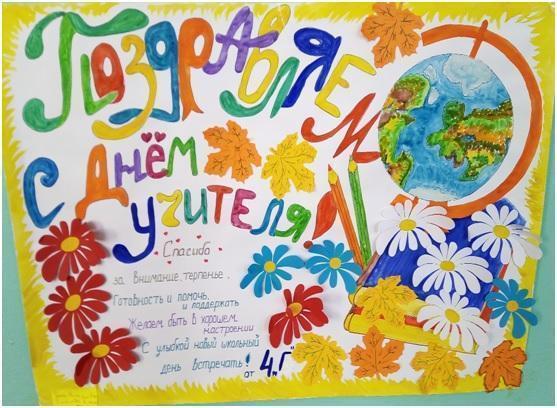 Поздравляем
с Днём
учителя
Спасибо
за внимание, терпенье.
Готовность и помочь,
и поддержать
Желаем быть в хорошем
настроении
С улыбкой новый школьный
день встречать!
от 4„Г"